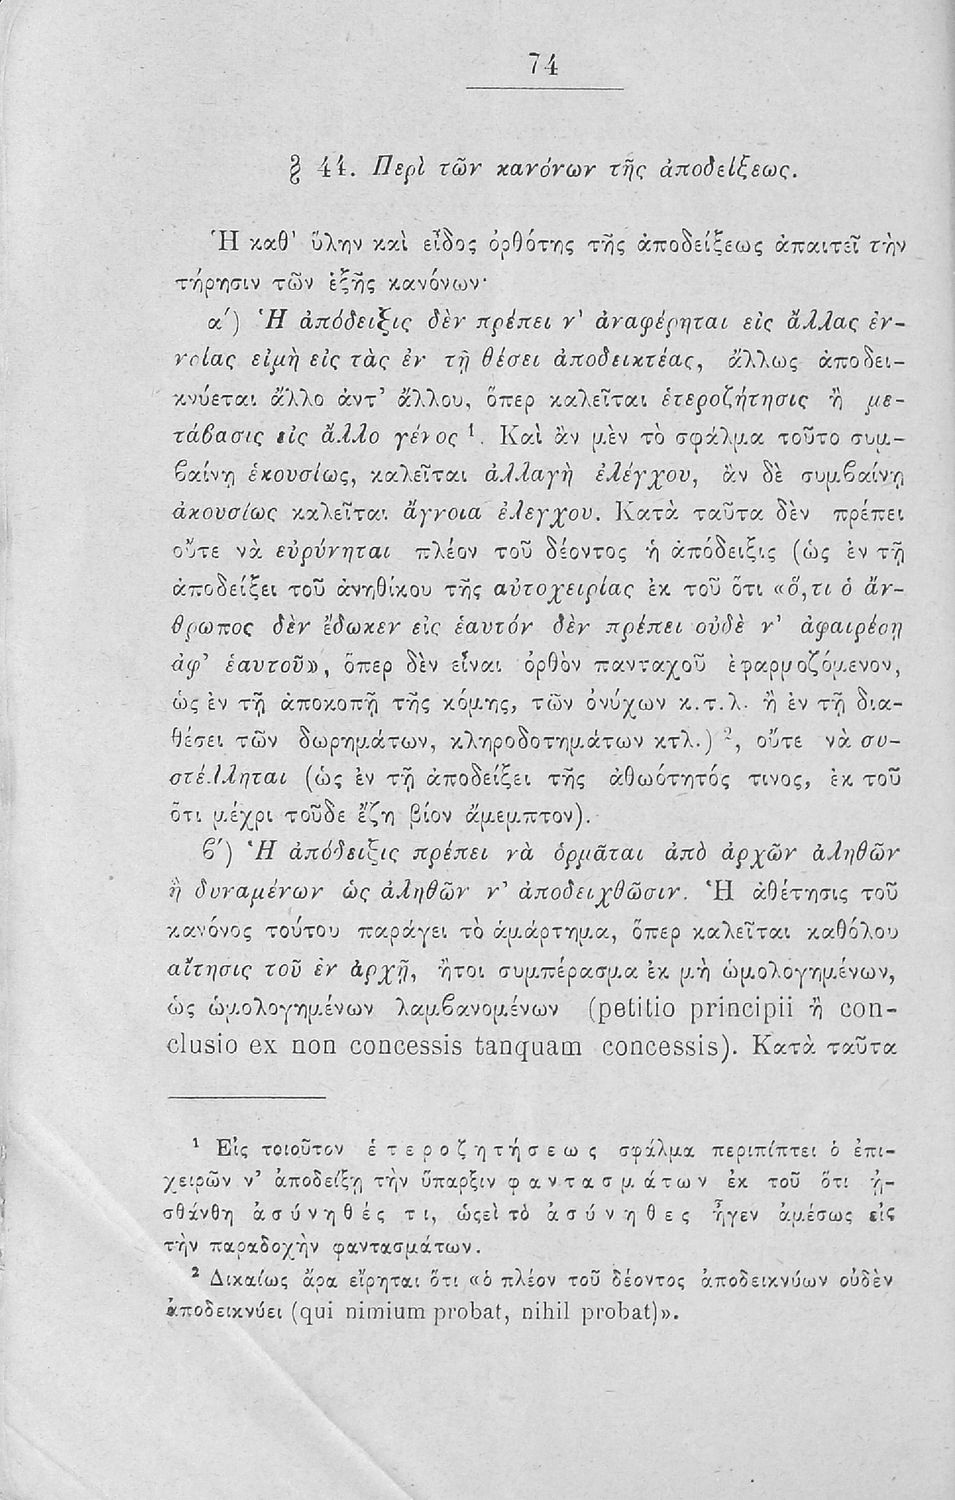 74
§ 44. Περὶ τῶν κανόνων τῆς ἀποδείξεως.
Ἡ καθ' ὕλην καὶ εἶδος ὀρθότης τῆς ἀποδείξεως ἀπαιτεῖ τὴν
τήρησιν τῶν ἑξῆς κανόνων·
α΄) Ἡ ἀπόδειξις δὲν πρέπει ν' ἀναφέρηται εἰς ἄλλας ἐν-
νοίας εἰμὴ εἰς τὰς ἐν τῇ θέσει ἀποδεικτέας, ἄλλως ἀποδει-
κνύεται ἄλλο ἀντ' ἄλλου, ὅπερ καλεῖται ἑτεροζήτησις ἢ με-
τάβασις εἰς ἄλλο γένος ¹. Καὶ ἂν μὲν τὸ σφάλμα τοῦτο συμ-
βαίνῃ ἑκουσίως, καλεῖται ἀλλαγὴ ἐλέγχου, ἂν δὲ συμβαίνῃ
ἀκουσίως καλεῖται ἄγνοια ἐλέγχου. Κατὰ ταῦτα δὲν πρέπει
οὔτε νὰ εὐρύνηται πλέον τοῦ δέοντος ἡ ἀπόδειξις (ὡς ἐν τῇ
ἀποδείξει τοῦ ἀνηθίκου τῆς αὐτοχειρίας ἐκ τοῦ ὅτι «ὅ,τι ὁ ἄν-
θρωπος δὲν ἔδωκεν εἰς ἑαυτόν δὲν πρέπει οὐδὲ ν' ἀφαιρέσῃ
ἀφ' ἑαυτοῦ», ὅπερ δὲν εἶναι ὀρθὸν πανταχοῦ ἐφαρμοζόμενον,
ὡς ἐν τῇ ἀποκοπῇ τῆς κόμης, τῶν ὀνύχων κ.τ.λ. ἢ ἐν τῇ δια-
θέσει τῶν δωρημάτων, κληροδοτημάτων κτλ.) ², οὔτε νὰ συ-
στέλληται (ὡς ἐν τῇ ἀποδείξει τῆς ἀθωότητός τινος, ἐκ τοῦ
ὅτι μέχρι τοῦδε ἔζη βίον ἄμεμπτον).
β΄) Ἡ ἀπόδειξις πρέπει νὰ ὁρμᾶται ἀπὸ ἀρχῶν ἀληθῶν
ἢ δυναμένων ὡς ἀληθῶν ν' ἀποδειχθῶσιν. Ἡ ἀθέτησις τοῦ
κανόνος τούτου παράγει τὸ ἁμάρτημα, ὅπερ καλεῖται καθόλου
αἴτησις τοῦ ἐν ἀρχῇ, ἤτοι συμπέρασμα ἐκ μὴ ὡμολογημένων,
ὡς ὡμολογημένων λαμβανομένων (petitio principii ἢ con-
clusio ex non concessis tanquam concessis). Κατὰ ταῦτα
¹ Εἰς τοιοῦτον ἑτεροζητήσεως σφάλμα περιπίπτει ὁ ἐπι-
χειρῶν ν' ἀποδείξῃ τὴν ὕπαρξιν φαντασμάτων ἐκ τοῦ ὅτι ᾐ-
σθάνθη ἀσύνηθές τι, ὡςεὶ τὸ ἀσύνηθες ἦγεν ἀμέσως εἰς
τὴν παραδοχὴν φαντασμάτων.
² Δικαίως ἄρα εἴρηται ὅτι «ὁ πλέον τοῦ δέοντος ἀποδεικνύων οὐδὲν
ἀποδεικνύει (qui nimium probat, nihil probat)».